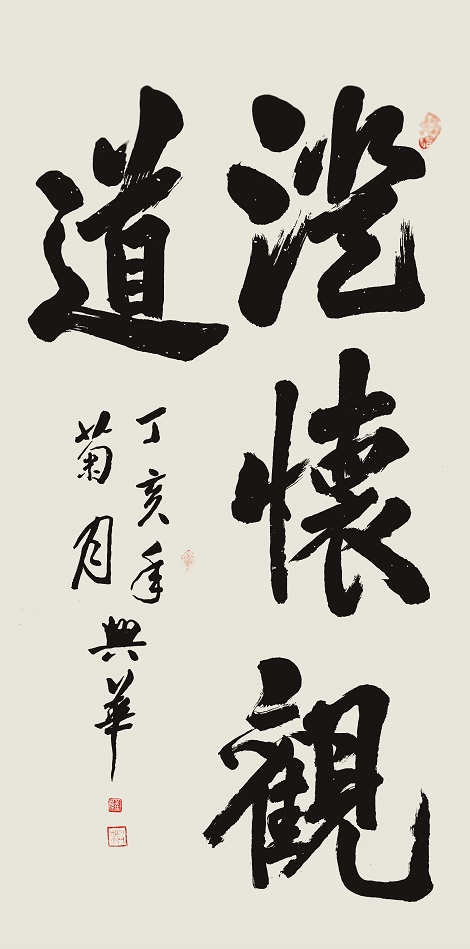 澄懷觀
道
丁亥年
菊月
興華